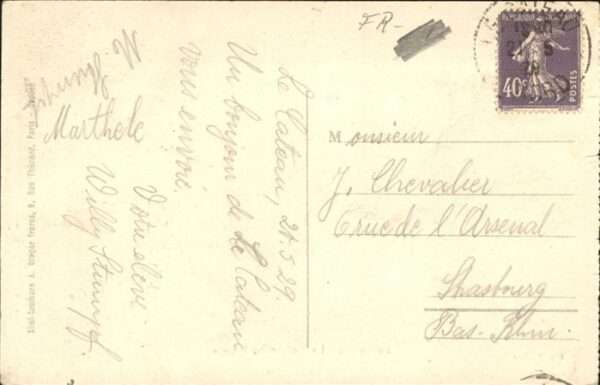 FR-
Le Cateau, 21.5.29.
Un bonjour de Le Cateau
vous envoie.
Votre élève
Willy Stumpf.
Marthele
Monsieur
J. Chevalier
6 rue de l'Arsenal
Strasbourg
Bas-Rhin.
40c
POSTES